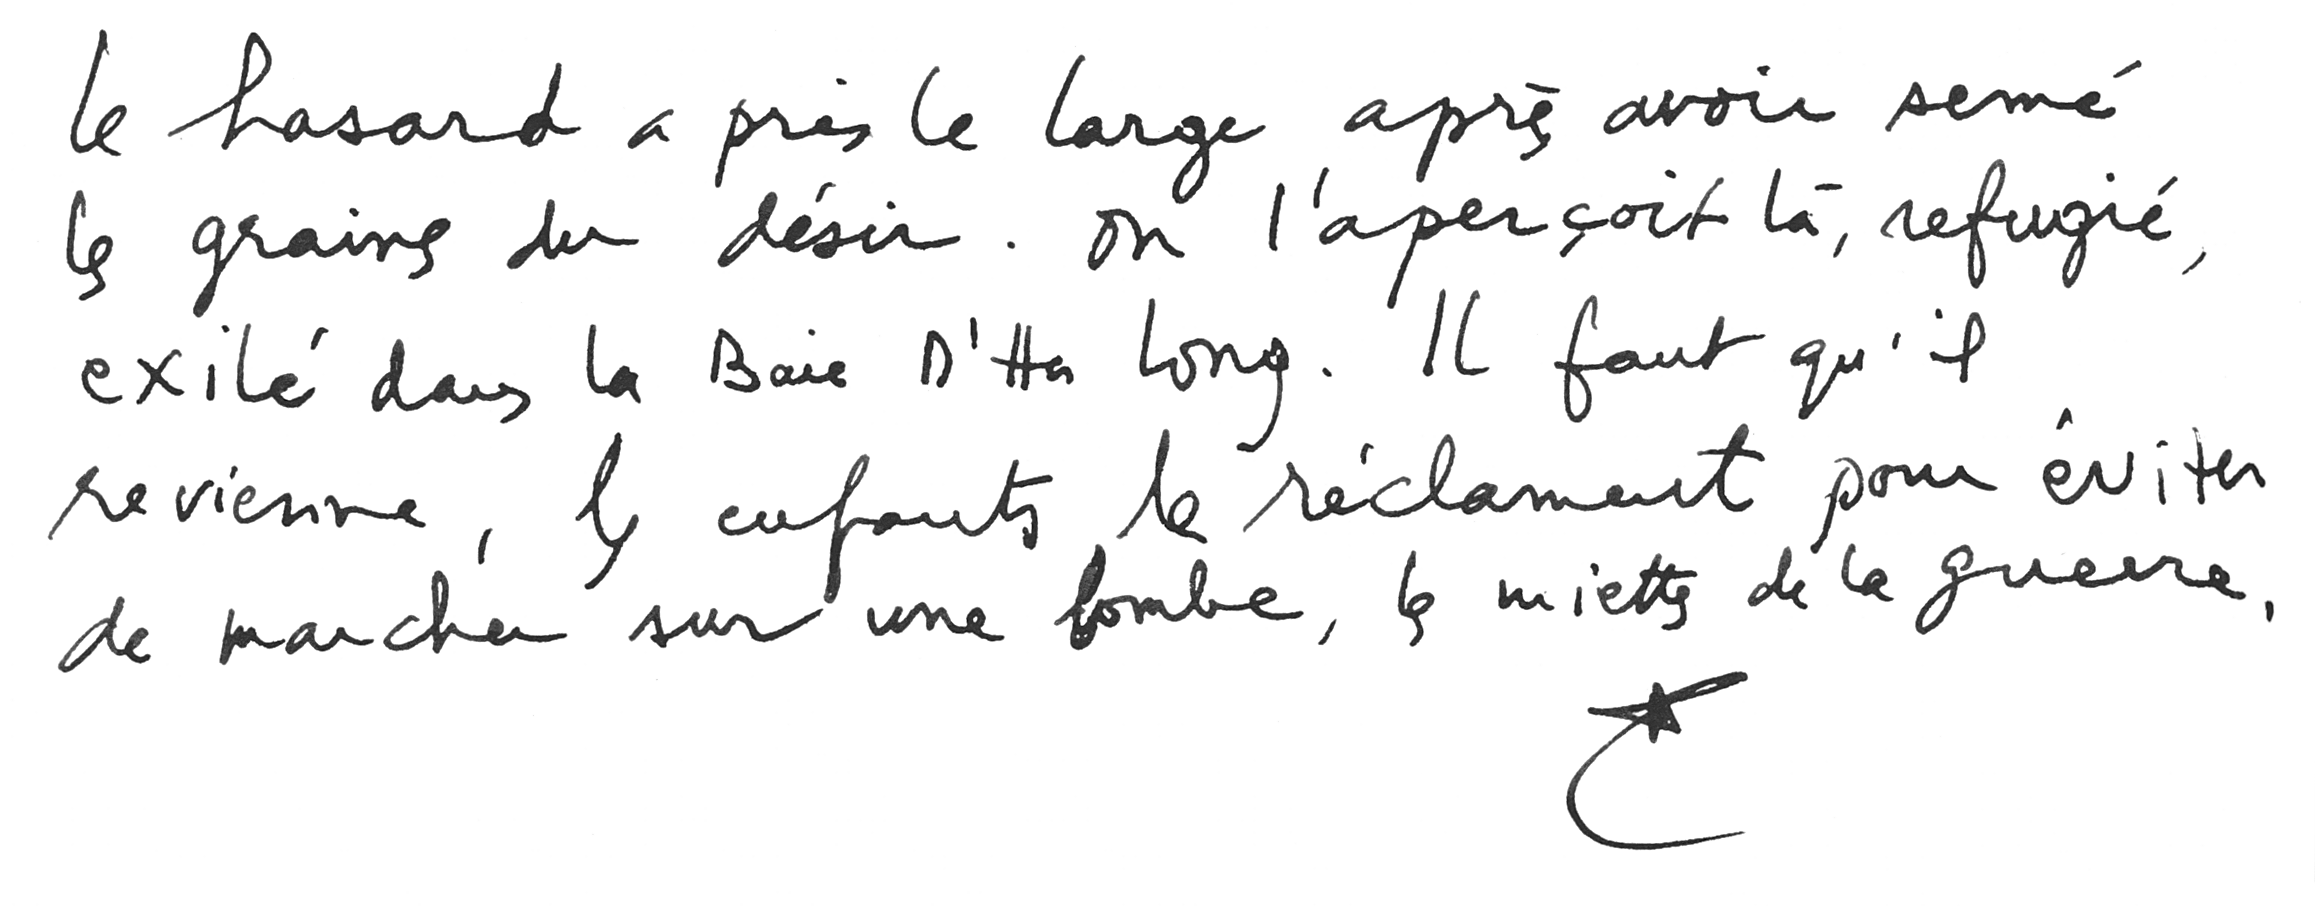 le hasard a pris le large après avoir semé
les graines du désir. on l'aperçoit là, refugié,
exilé dans la Baie D'Ha Long. Il faut qu'il
revienne, les enfants le réclament pour éviter
de marcher sur une bombe, les miettes de la guerre.